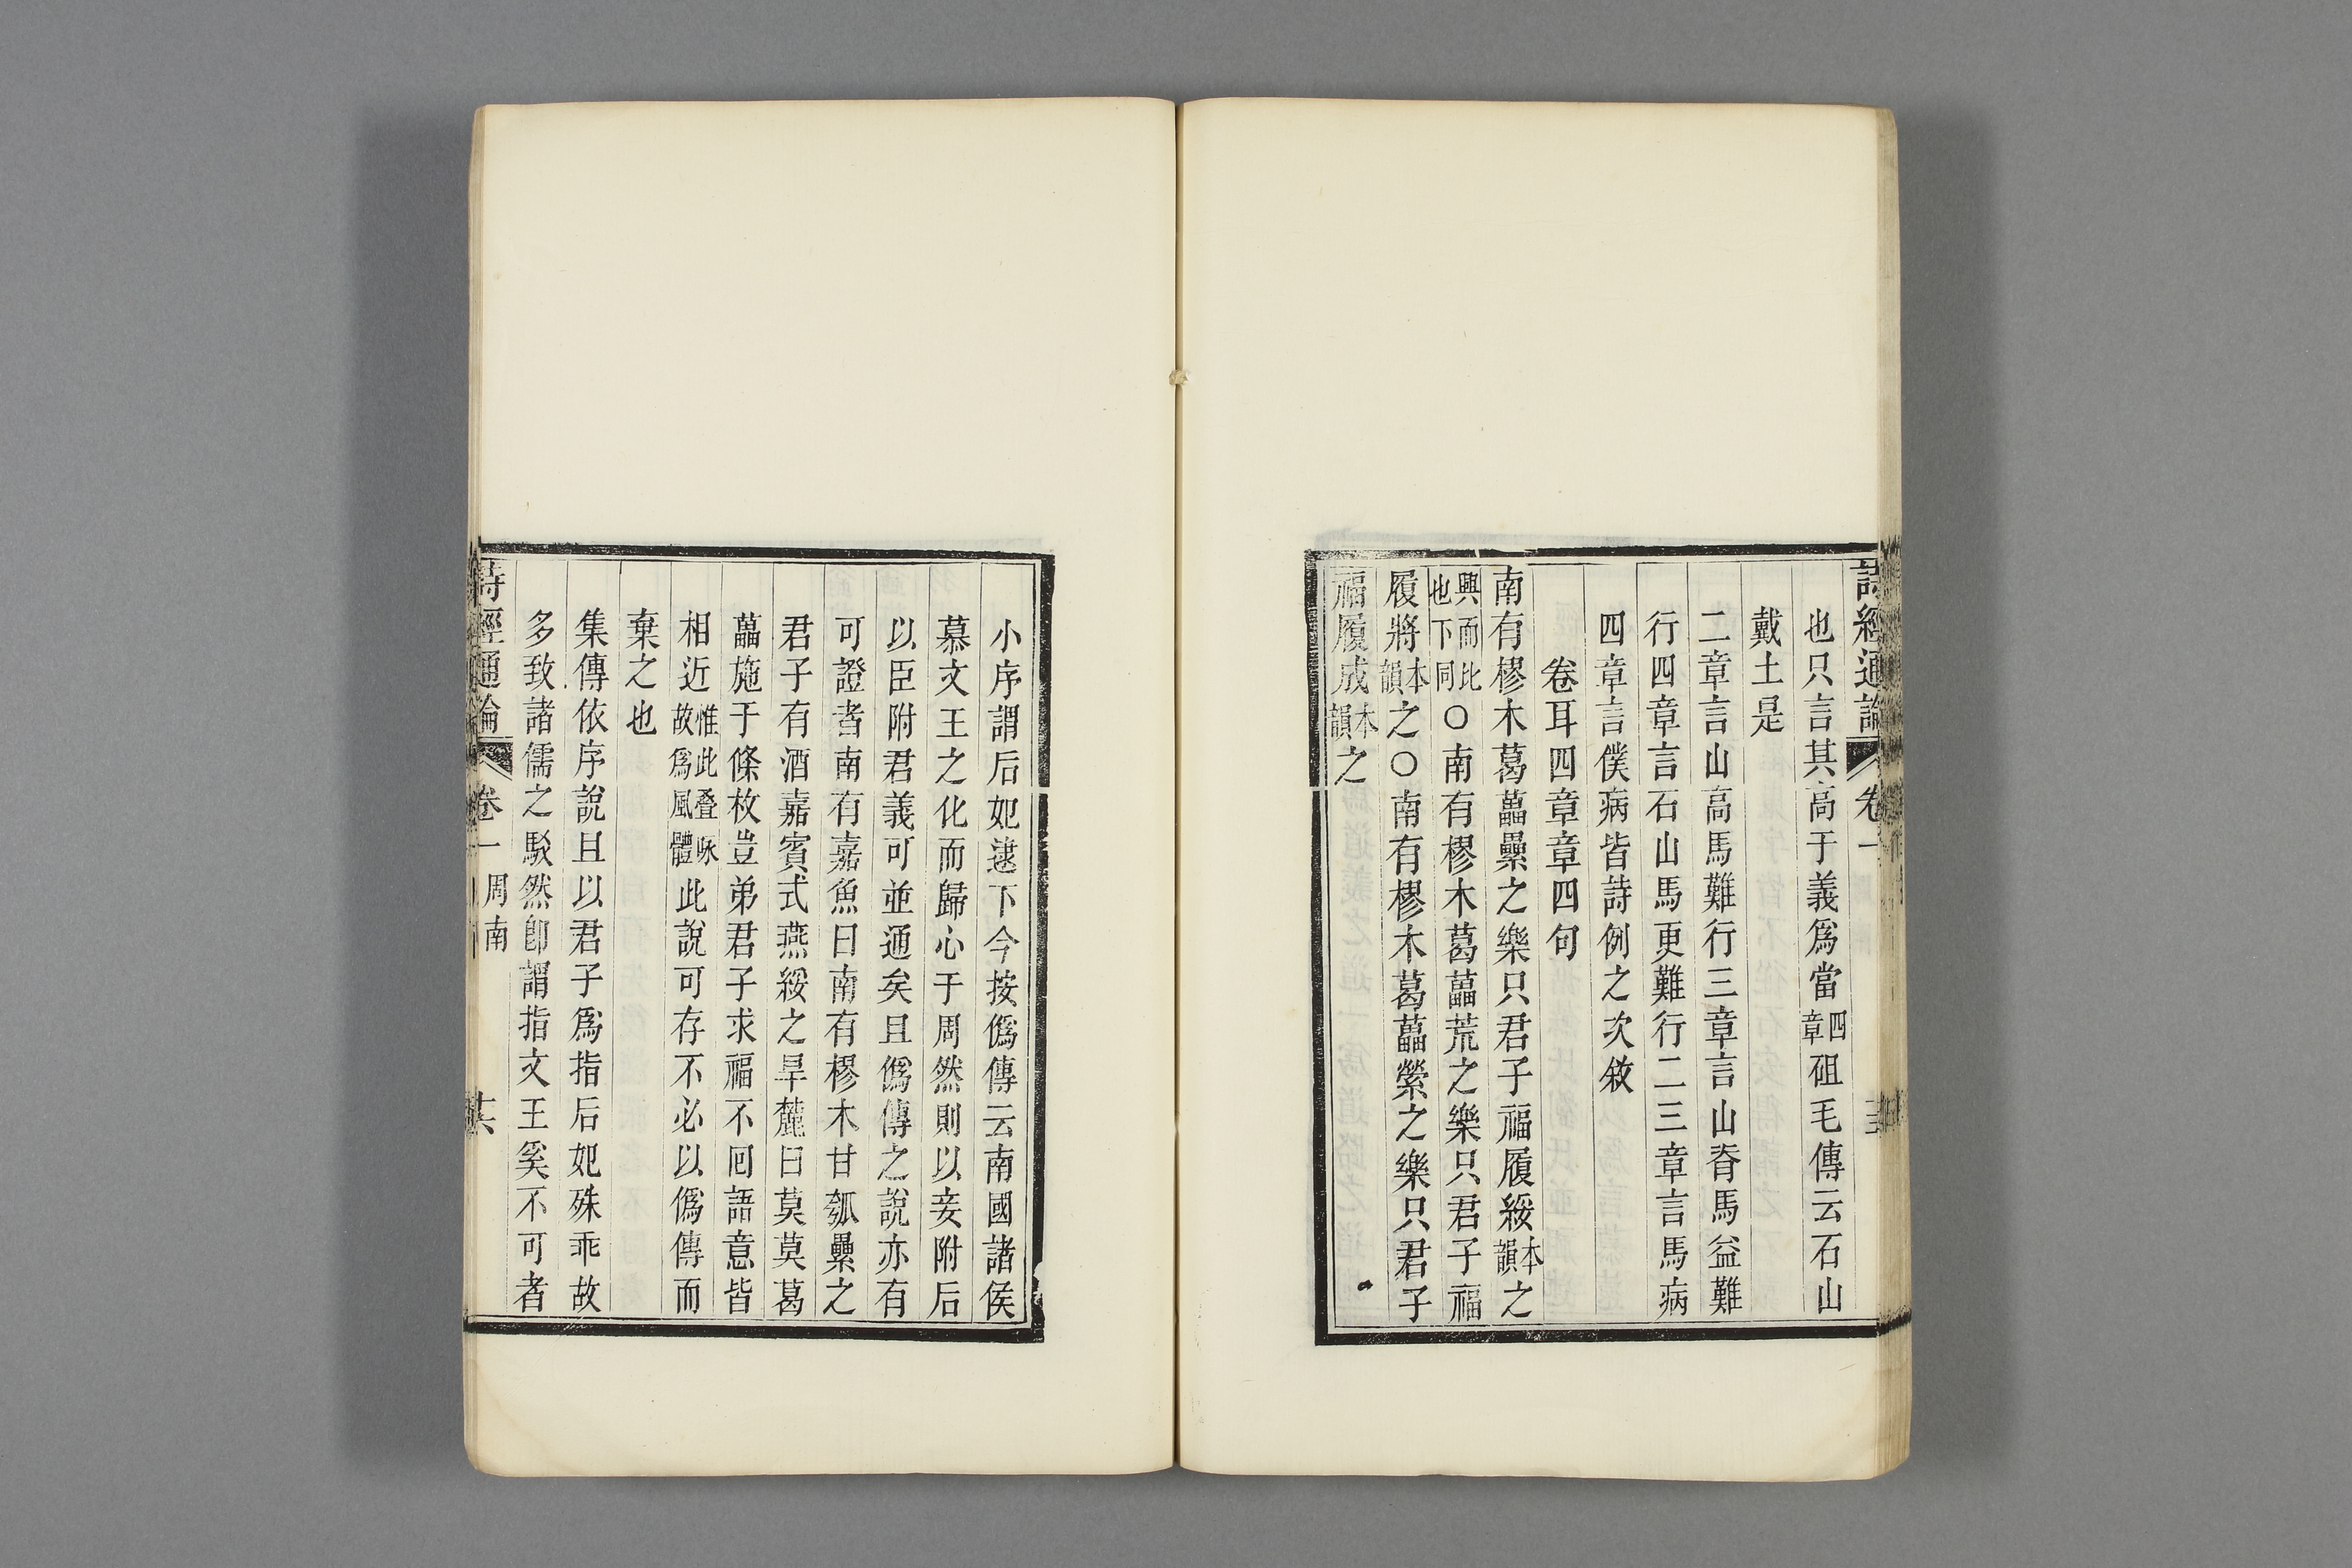 詩經通論 卷一
也只言其高于義爲當四章砠毛傳云石山
戴土是
二章言山高馬難行三章言山脊馬益難
行四章言石山馬更難行二三章言馬病
四章言僕病皆詩例之次敘
卷耳四章章四句
南有樛木葛藟纍之樂只君子福履綏本韻之
興而比也下同○南有樛木葛藟荒之樂只君子福
履將本韻之○南有樛木葛藟縈之樂只君子
福履成本韻之
小序謂后妃逮下今按僞傳云南國諸侯
慕文王之化而歸心于周然則以妾附后
以臣附君義可並通矣且僞傳之說亦有
可證者南有嘉魚曰南有樛木甘瓠纍之
君子有酒嘉賓式燕綏之旱麓曰莫莫葛
藟施于條枚豈弟君子求福不囘語意皆
相近惟此叠咏故爲風體此說可存不必以僞傳而
棄之也
集傳依序說且以君子爲指后妃殊乖故
多致諸儒之駁然卽謂指文王奚不可者
詩經通論 卷一 周南 十六